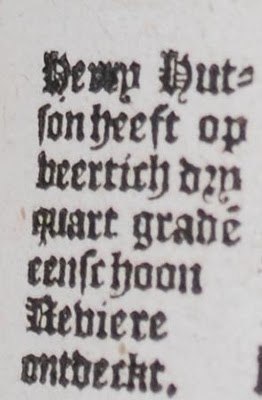 Henry Hut⸗
ſon heeft op
veertich dry
quart gradē
een ſchoon
Reviere
ontdeckt.